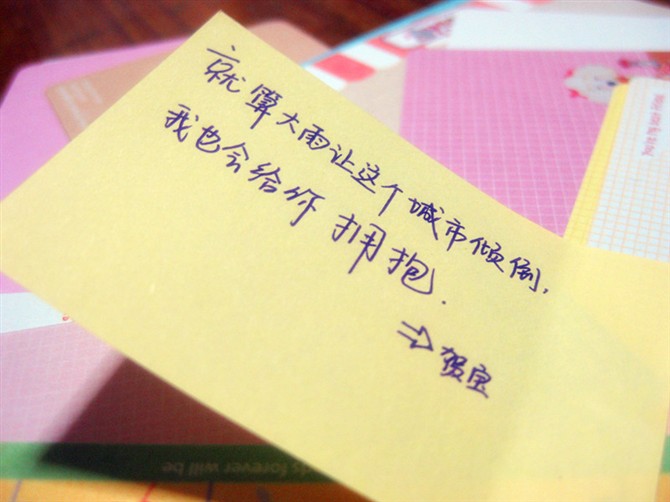 就算大雨让这个城市倾倒,
我也会给你拥抱.
⇒贺宝
ds forever will be